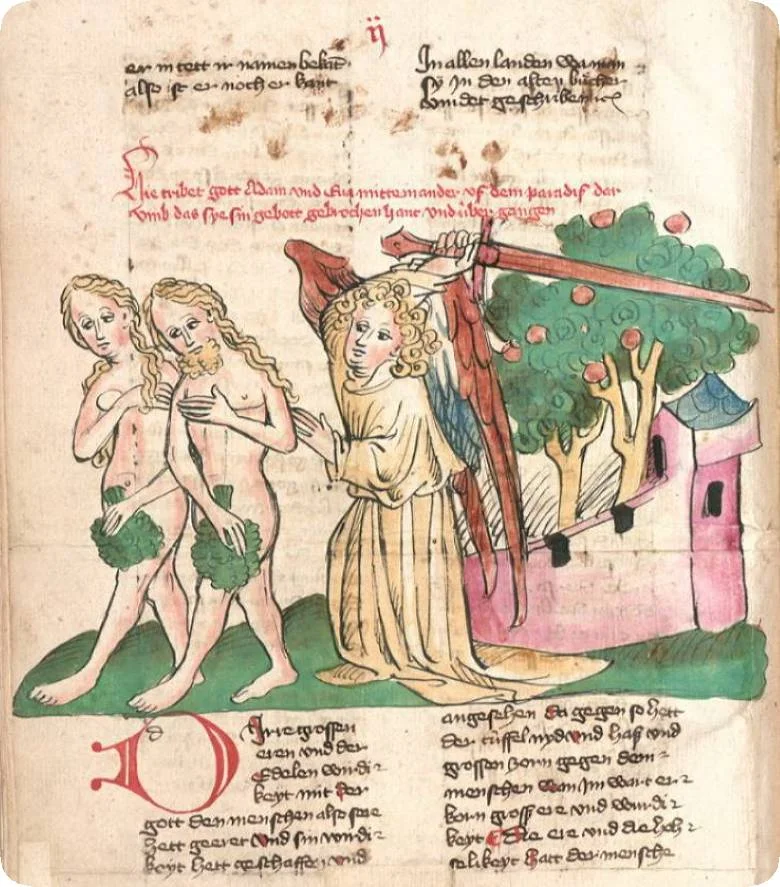 ij
er in tett ir namen bekat
also ist er noch er kant
In allen landen wa man
Sÿ In den alten bücher
vindet geschriben
Hie tribet gott Adam vnd Eua mitteinander vs dem paradiß dar
vmb das sye sin gebott gebrochen hant vnd über gangen
Die grossen
eren vnd der
Edelen wirdi
keyt mit der
gott den menschen also sere
hett geeret vnd sin wirdi
keyt hett geschaffen vnd
angesehen da gegen so hett
der tüffel nyd vnd haß vnd
grossen zorn gegen dem
menschen wan Im wart er
korn gross ere vnd wurdi
keyt Die ere vnd die hoh
selikeyt hatt der mensche